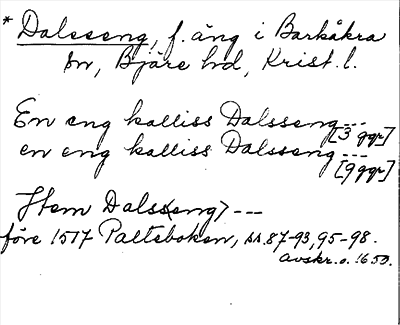 * Dalsseng, f. äng i Barkåkra
sn, Bjäre hd, Krist. l.
En eng kalliss Dalsseng --- [3 ggr]
en eng kalliss Dalsseng --- [9 ggr]
Item Dals(eng) ---
före 1517 Palteboken, ss. 87-93, 95-98.
avskr. o. 1650.